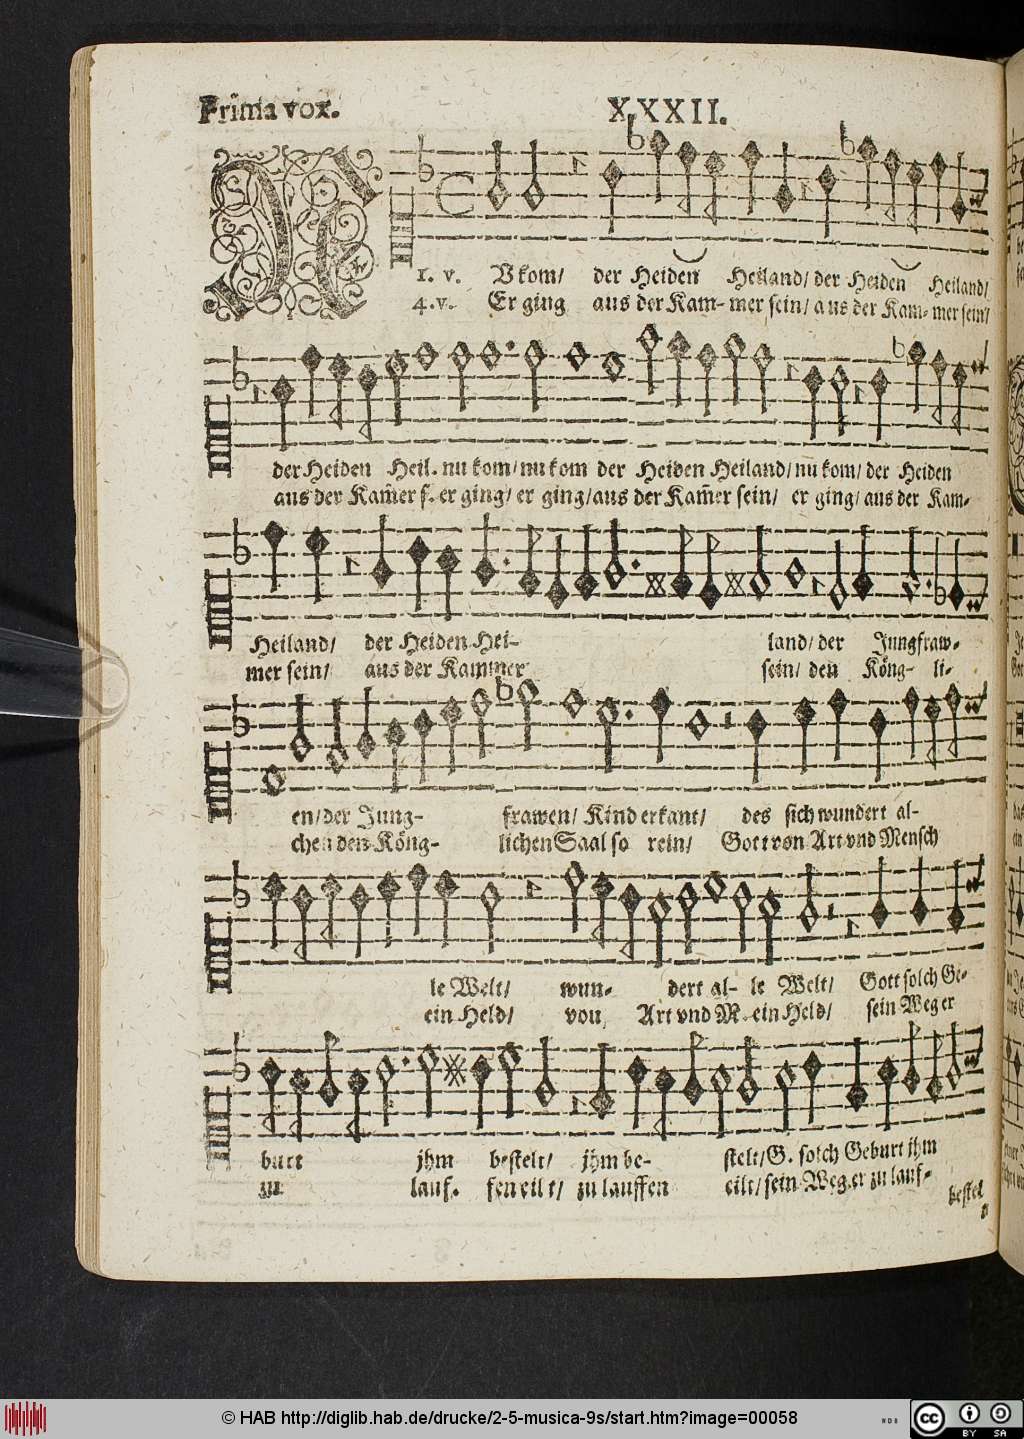 Prima vox.
XXXII.
1. v. NU kom/ der Heiden Heiland/ der Heiden Heiland/
4. v. Er ging aus der Kam- mer sein/ aus der Kam- mer sein/
der Heiden Heil. nu kom/ nu kom der Heiden Heiland/ nu kom/ der Heiden
aus der Kam̃er s. er ging/ er ging/ aus der Kam̃er sein/ er ging/ aus der Kam-
Heiland/ der Heiden Hei- land/ der Jungfraw-
mer sein/ aus der Kammer sein/ den Köng- li-
en/ der Jung- frawen/ Kind erkant/ des sich wundert al-
chen den Köng- lichen Saal so rein/ Gott von Art vnd Mensch
le Welt/ wun- dert al- le Welt/ Gott solch Ge-
ein Held/ von Art vnd M. ein Held/ sein Weg er
burt jhm bestelt/ jhm be- stelt/ G. solch Geburt jhm
zu lauf. fen eilt/ zu lauffen eilt/ sein Weg er zu lauf-
bestel
© HAB http://diglib.hab.de/drucke/2-5-musica-9s/start.htm?image=00058
cc BY SA